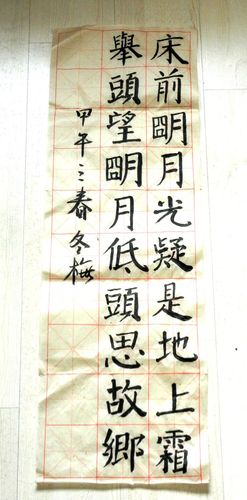 床前朙月光疑是地上霜
舉頭望朙月低頭思故鄉
甲午三春冬梅